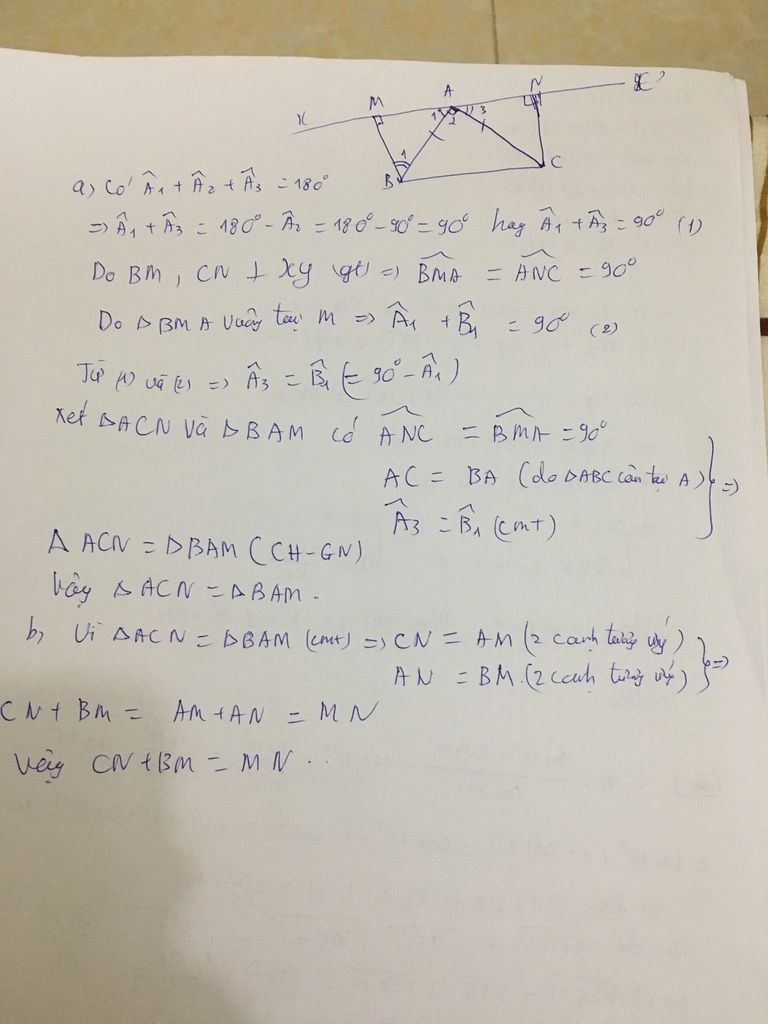 x M A N x'
1 2 3
1
B C
a) Có Â1 + Â2 + Â3 = 180°
=> Â1 + Â3 = 180° - Â2 = 180° - 90° = 90° hay Â1 + Â3 = 90° (1)
Do BM, CN ⊥ xy (gt) => \widehat{BMA} = \widehat{ANC} = 90°
Do ΔBMA vuông tại M => Â1 + B̂1 = 90° (2)
Từ (1) và (2) => Â3 = B̂1 (= 90° - Â1)
Xét ΔACN và ΔBAM có \widehat{ANC} = \widehat{BMA} = 90°
AC = BA (do ΔABC cân tại A) } =>
Â3 = B̂1 (cmt)
Δ ACN = ΔBAM (CH-GN)
Vậy ΔACN = ΔBAM.
b, Vì ΔACN = ΔBAM (cmt) => CN = AM (2 cạnh tương ứng)
AN = BM. (2 cạnh tương ứng) } =>
CN + BM = AM + AN = MN
Vậy CN + BM = MN ..